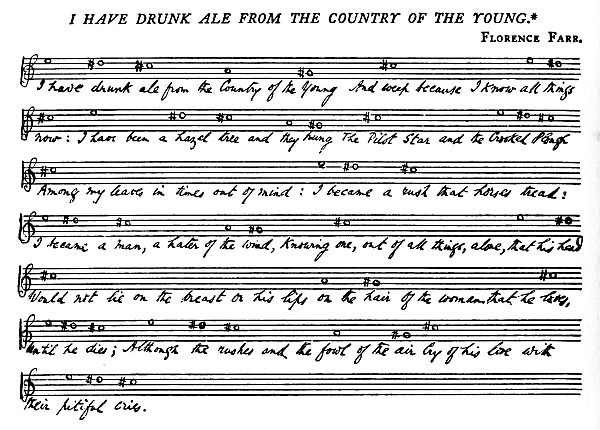 I HAVE DRUNK ALE FROM THE COUNTRY OF THE YOUNG.*
FLORENCE FARR.
I have drunk ale from the Country of the Young And weep because I know all things
now: I have been a hazel tree and they hung The Pilot Star and the Crooked Plough
Among my leaves in times out of mind: I became a rush that horses tread:
I became a man, a hater of the wind, knowing one, out of all things, alone, that his head
Would not lie on the breast or his lips on the hair Of the woman that he loves,
Until he dies; Although the rushes and the fowl of the air Cry of his love with
their pitiful cries.